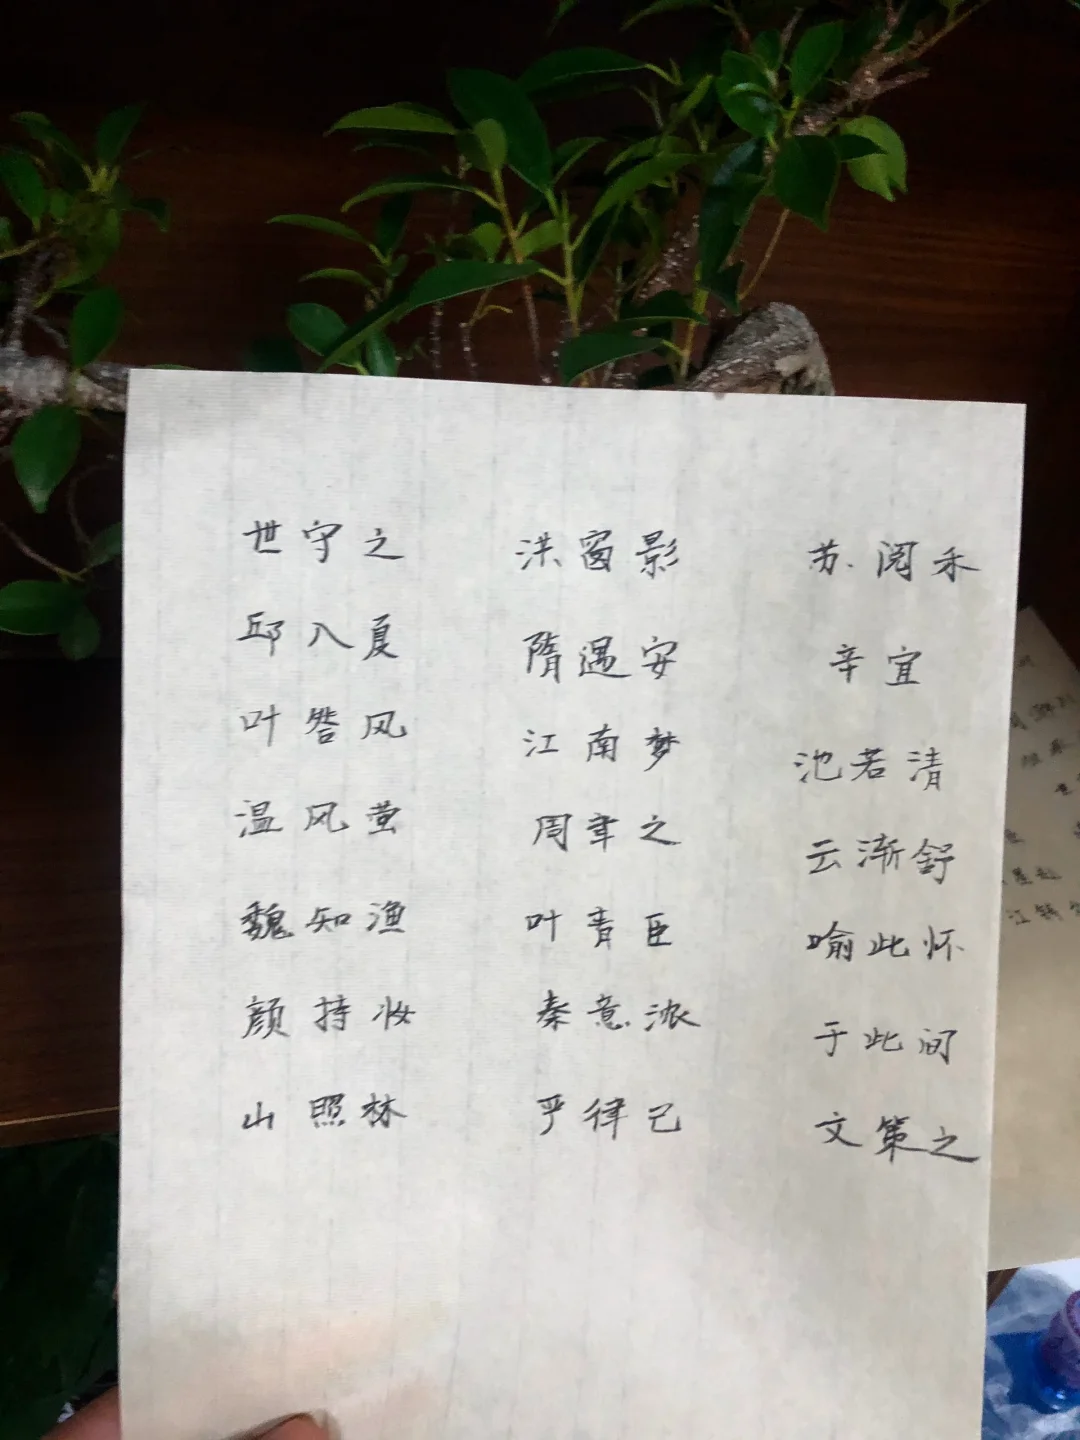 世守之
邱入夏
叶答风
温风萤
魏知渔
颜持妆
山照林
洪窗影
隋遇安
江南梦
周聿之
叶青臣
秦意浓
严律己
苏阅禾
辛宜
池若清
云渐舒
喻此怀
于此间
文策之